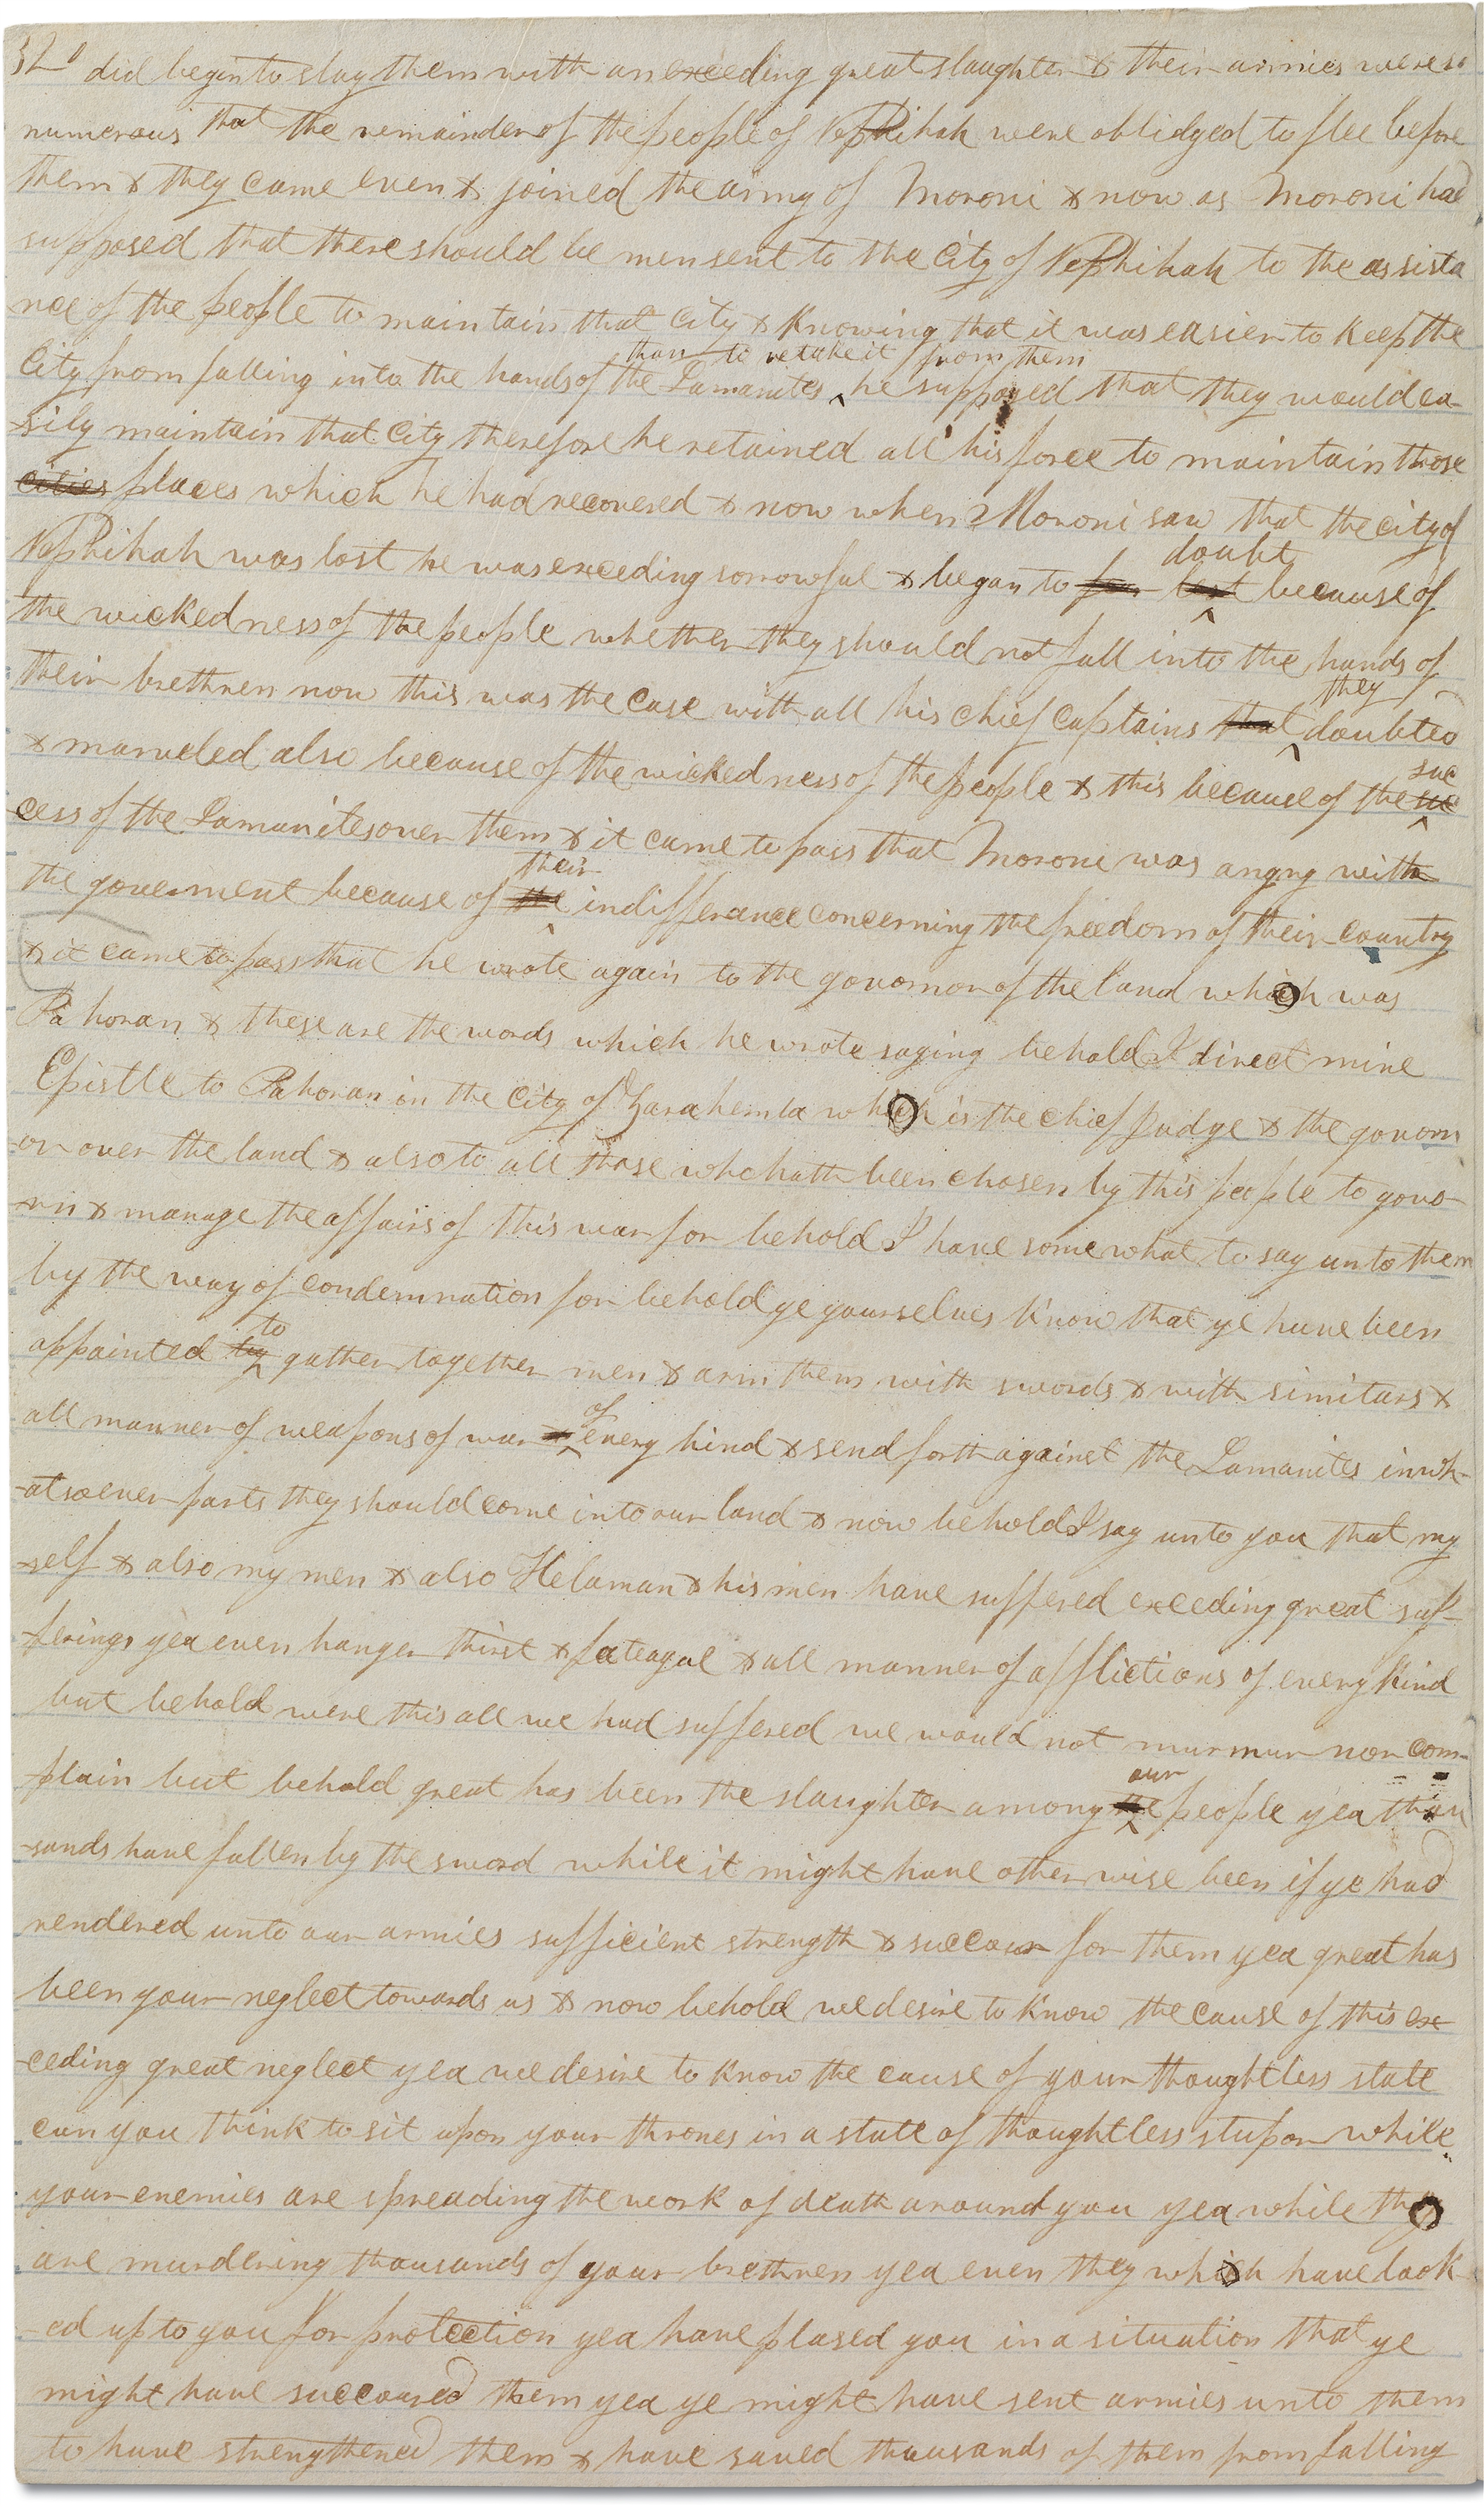 320 did begin to slay them with an exceeding great slaughter & their armies were so
numerous that the remainder of the people of Nephihah were oblidged to flee before
them & they came even & joined the army of Moroni & now as Moroni had
supposed that there should be men sent to the City of Nephihah to the assista
nce of the people to maintain that City & knowing that it was easier to keep the
than to retake it from them
City from falling into the hands of the Lamanites ^ he supposed that they would ea-
-sily maintain that City therefore he retained all his force to maintain those
cities places which he had recovered & now when Moroni saw that the city of
doubt
Nephihah was lost he was exceeding sorrowful & began to fear lest ^ because of
the wickedness of the people whether they should not fall into the hands of
they
their brethren now this was the case with all his chief Captains that ^ doubted
suc
& marveled also because of the wickedness of the people & this because of the suc ^
cess of the Lamanites over them & it came to pass that Moroni was angry with
their
the goverment because of the ^ indifferance concerning the freedom of their country
& it came to pass that he wrote again to the governor of the land which was
Pahoran & these are the words which he wrote saying behold I direct mine
Epistle to Pahoran in the City of Zarahemla which is the chief Judge & the govorn
-or over the land & also to all those who hath been chosen by this people to gove
-rn & manage the affairs of this war for behold I have somewhat to say unto them
by the way of condemnation for behold ye yourselves know that ye have been
to
appointed by ^ gather together men & arm them with swords & with simitars &
of
all manner of weapons of war ^ every kind & send forth against the Lamanites in wh-
-atsoever parts they should come into our land & now behold I say unto you that my
-self & also my men & also Helaman & his men have suffered exceeding great suf-
-ferings yea even hunger thirst & fateague & all manner of afflictions of every kind
but behold were this all we had suffered we would not murmur nor com-
our
plain but behold great has been the slaughter among the ^ people yea thou
-sands have fallen by the sword while it might have otherwise been if ye had
rendered unto our armies sufficient strength & succour for them yea great has
been your neglect towards us & now behold we desire to know the cause of this exc
-eeding great neglect yea we desire to know the cause of your thoughtless state
can you think to sit upon your thrones in a state of thoughtless stupor while
your enemies are spreading the work of death around you yea while they
are murdering thousands of your brethren yea even they which have look
-ed up to you for protection yea have plased you in a situation that ye
might have succoured them yea ye might have sent armies unto them
to have strengthened them & have saved thousands of them from falling